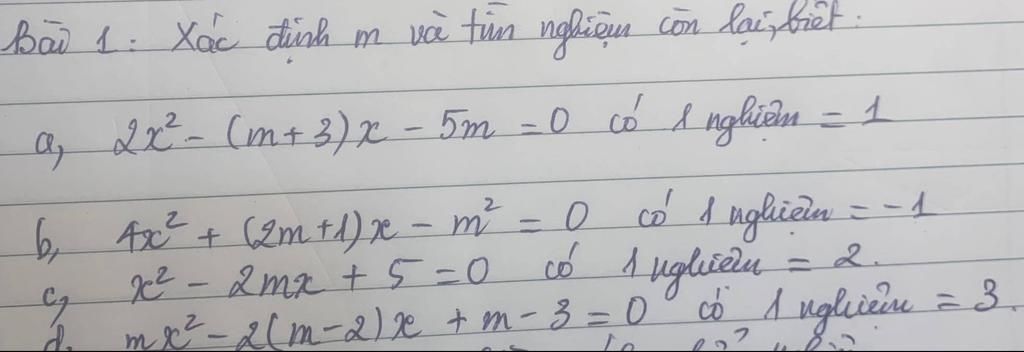 Bài 1: Xác định m và tìm nghiệm còn lại, biết:
a, 2x² - (m+3)x - 5m = 0 có 1 nghiệm = 1
b, 4x² + (2m+1)x - m² = 0 có 1 nghiệm = -1
c, x² - 2mx + 5 = 0 có 1 nghiệm = 2.
d. mx² - 2(m-2)x + m - 3 = 0 có 1 nghiệm = 3.